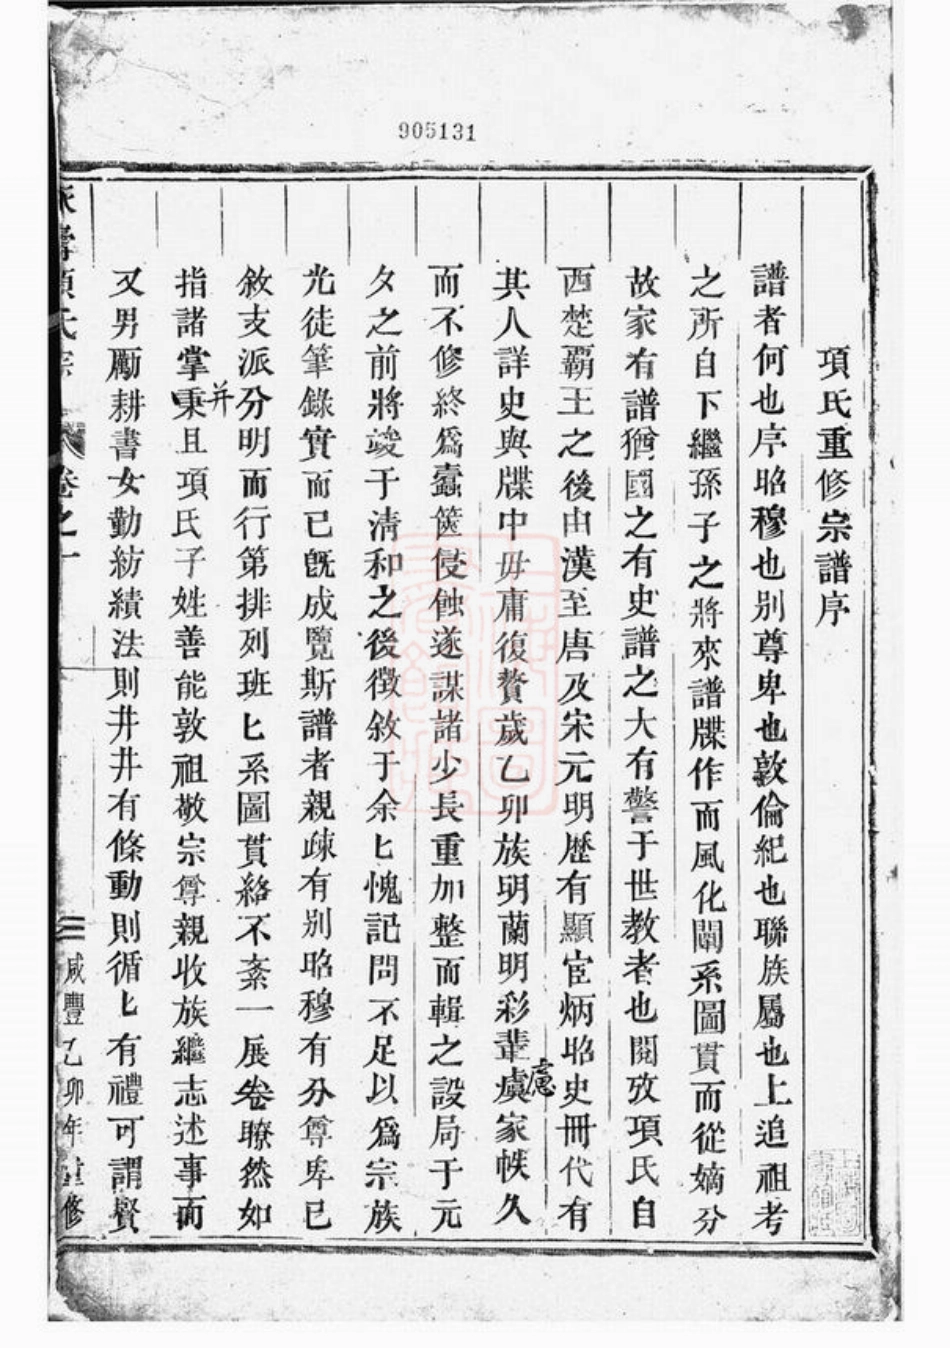 905131
項氏重修宗譜序
譜者何也序昭穆也別尊卑也敦倫紀也聯族屬也上追祖考
之所自下繼孫子之將來譜牒作而風化關系圖貫而從嫡分
故家有譜猶國之有史譜之大有警于世教者也閱攷項氏自
西楚覇王之後由漢至唐及宋元明歷有顯宦炳昭史冊代有
其人詳史與牒中毋庸復贅歲乙卯族明蘭明彩輩虞家帙久
慮
而不修終爲蠹篋侵蝕遂謀諸少長重加整而輯之設局于元
夕之前將竣于清和之後徵敘于余匕愧記問不足以爲宗族
光徒筆錄實而已旣成覽斯譜者親疎有別昭穆有分尊卑已
敘支派分明而行第排列班匕系圖貫絡不紊一展卷瞭然如
并
指諸掌秉且項氏子姓善能敦祖敬宗尊親收族繼志述事而
又男勵耕書女勤紡績法則井井有條動則循匕有禮可謂賢
項氏宗 卷之一 咸豐乙卯年 修